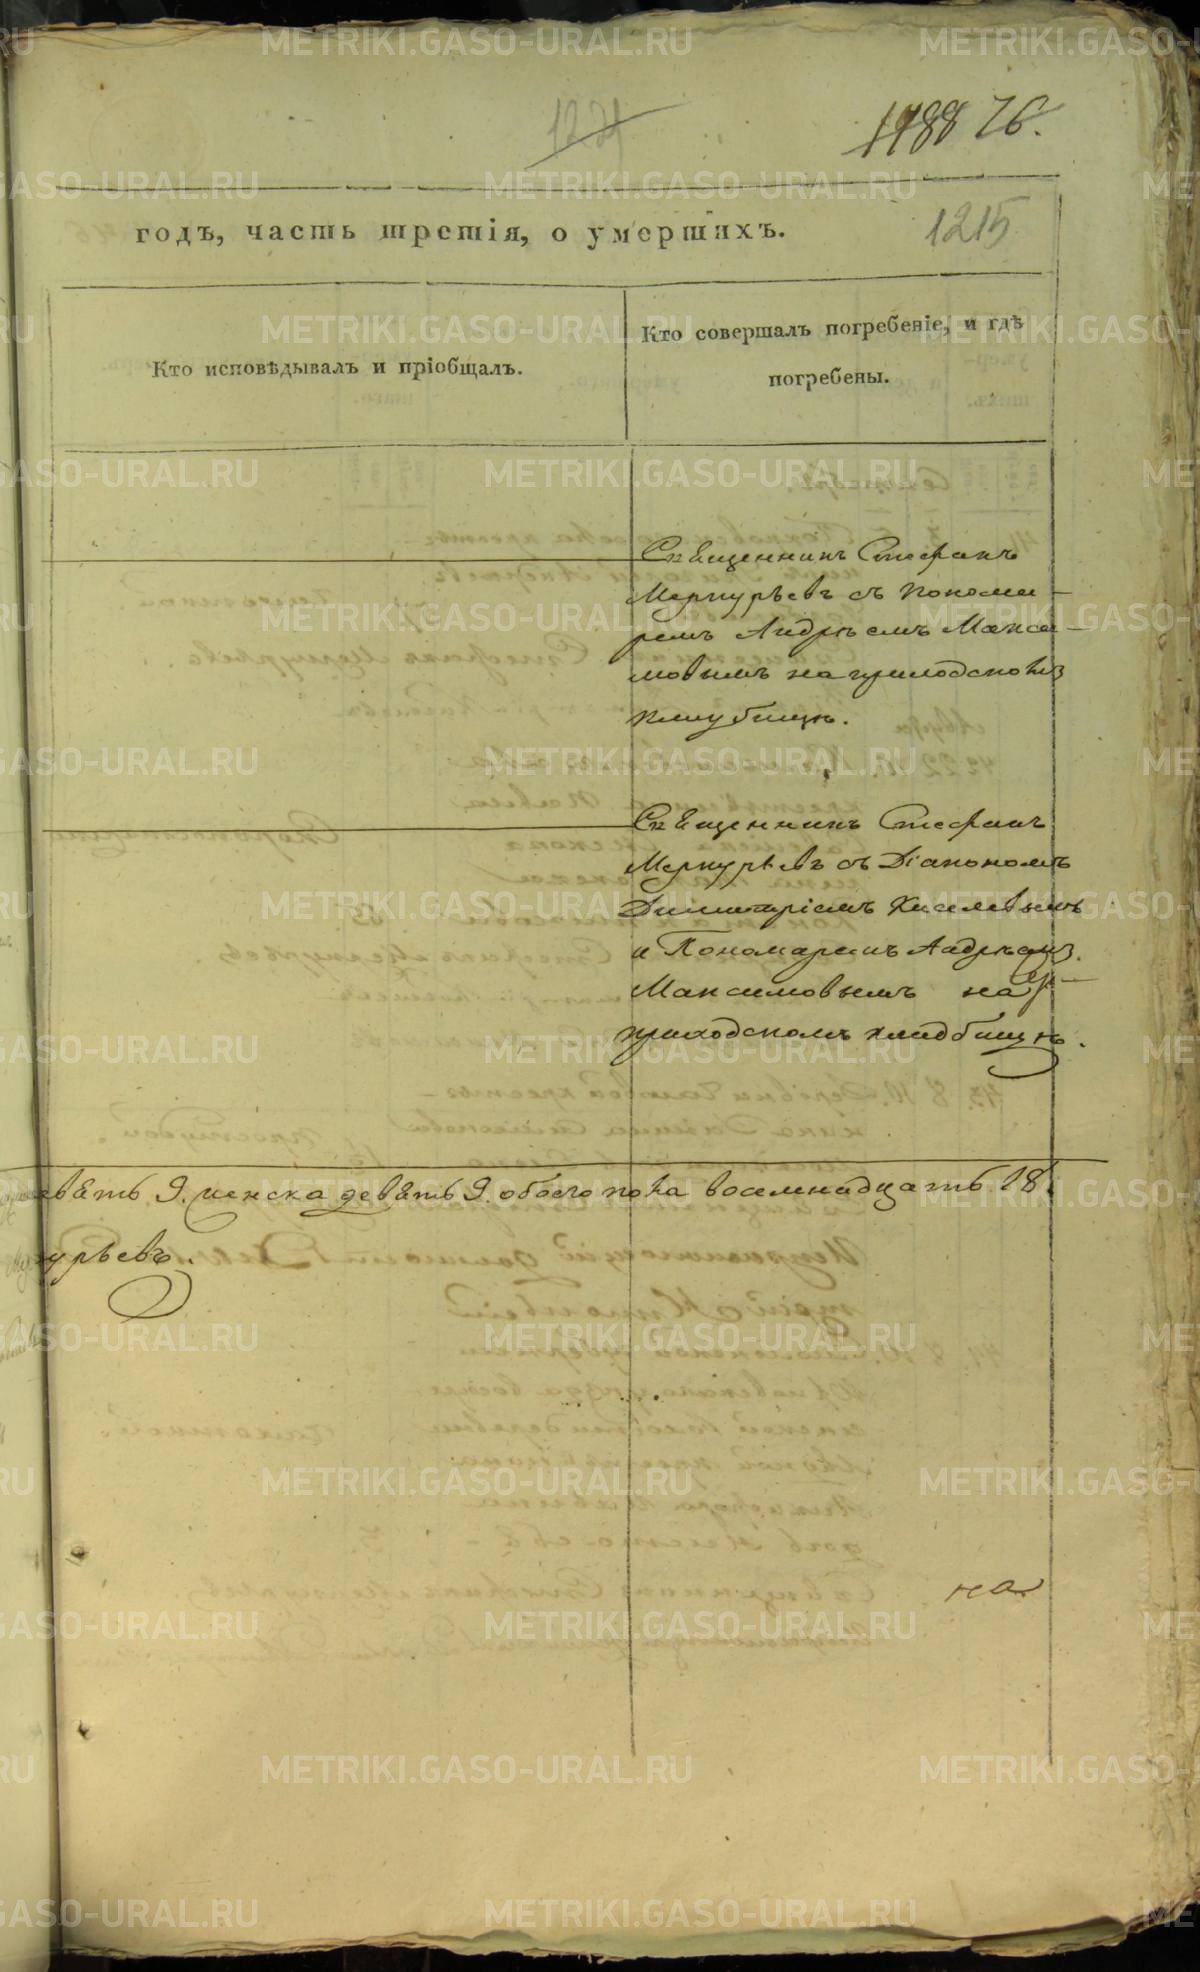 1221
1188 76.
годъ, часть третія, о умершихъ.
1215
Кто исповѣдывалъ и пріобщалъ.
Кто совершалъ погребеніе, и гдѣ
погребены.
Священникъ Стефанъ
Меркурьевъ съ Понома-
ремъ Андрѣемъ Макси-
мовымъ на приходскомъ
кладбищѣ.
Священникъ Стефанъ
Меркурьевъ съ Діакономъ
Димитріемъ Киселевымъ
и Пономаремъ Андрѣемъ
Максимовымъ на
приходскомъ кладбищѣ.
евять 9. женска девять 9. обоего пола восемнадцать 18.
урьевъ.
на
METRIKI.GASO-URAL.RU